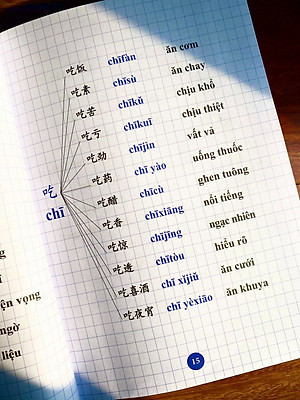 吃饭 chīfàn ăn cơm
吃素 chīsù ăn chay
吃苦 chīkǔ chịu khổ
吃亏 chīkuī chịu thiệt
吃劲 chījìn vất vả
吃药 chī yào uống thuốc
吃醋 chīcù ghen tuông
吃香 chīxiāng nổi tiếng
吃惊 chījīng ngạc nhiên
吃透 chītòu hiểu rõ
吃喜酒 chī xǐjiǔ ăn cưới
吃夜宵 chī yèxiāo ăn khuya
吃
chī
ện vọng
ngờ
liệu
15